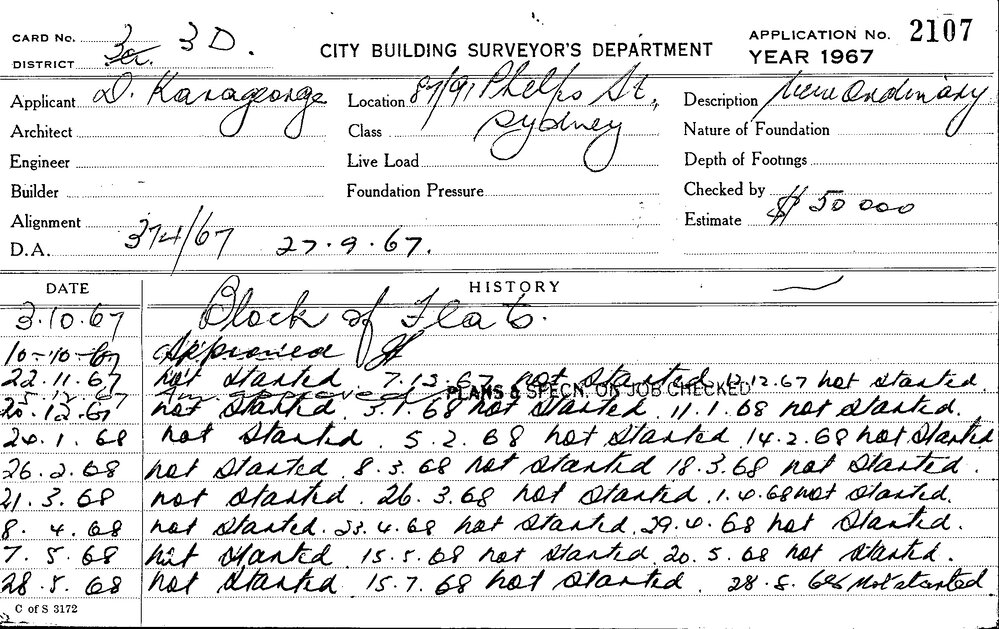 CARD No. 3a 3D.
DISTRICT
CITY BUILDING SURVEYOR'S DEPARTMENT
APPLICATION No. 2107
YEAR 1967
Applicant D. Karageorge
Location 87/91 Phelps St., Sydney
Description New Ordinary
Architect
Class
Nature of Foundation
Engineer
Live Load
Depth of Footings
Builder
Foundation Pressure
Checked by
Alignment
Estimate $ 50 000
D.A. 374/67 27.9.67.
DATE HISTORY
3.10.67 Block of Flats.
10-10-67 Approved
22.11.67 not started. 7.12.67 not started 12.12.67 not started.
PLANS & SPECN. ON JOB CHECKED
20.12.67 not started. 3.1.68 not started. 11.1.68 not started.
24.1.68 not started. 5.2.68 not started 14.2.68 not started
26.2.68 not started. 8.3.68 not started 18.3.68 not started.
21.3.68 not started. 26.3.68 not started. 1.4.68 not started.
8.4.68 not started. 23.4.68 not started. 29.4.68 not started.
7.5.68 not started 15.5.68 not started. 20.5.68 not started.
28.5.68 not started 15.7.68 not started. 28.8.68 not started
C of S 3172